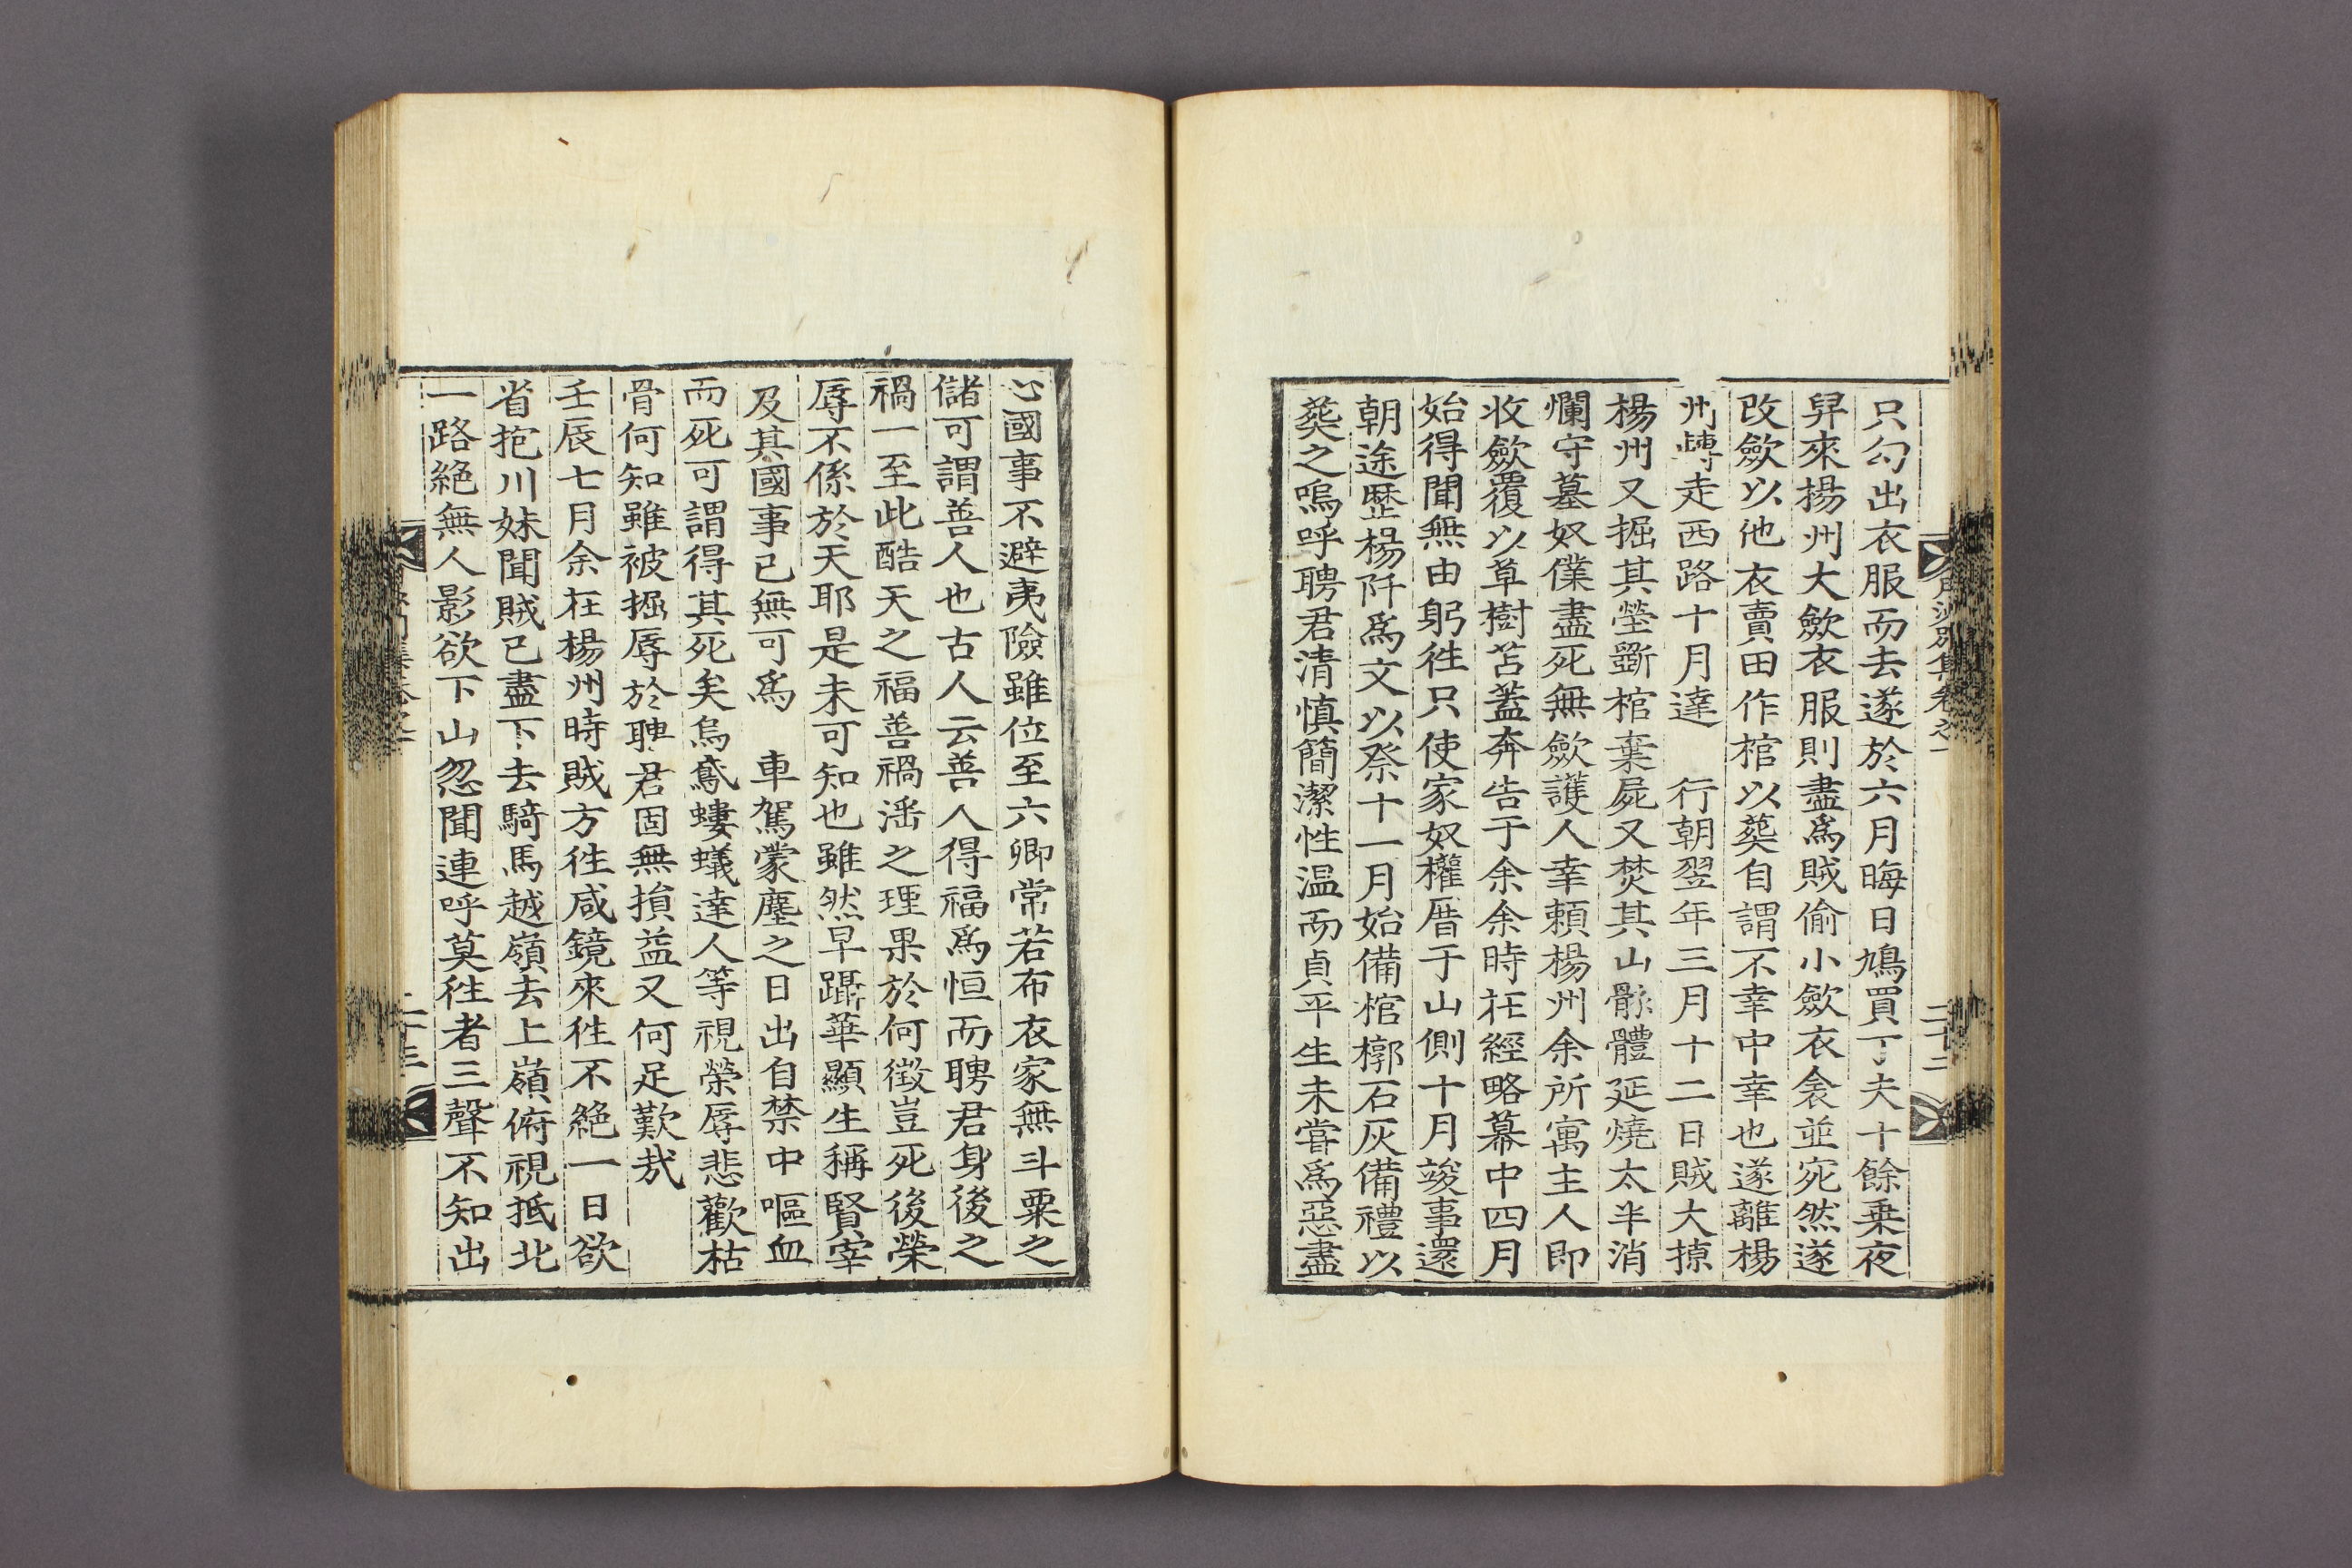 只勾出衣服而去遂於六月晦日鳩買丁夫十餘乗夜
舁來揚州大歛衣服則盡爲賊偷小歛衣衾並宛然遂
改歛以他衣賣田作棺以葬自謂不幸中幸也遂離楊
州轉走西路十月達 行朝翌年三月十二日賊大掠
楊州又掘其塋斲棺棄屍又焚其山骸體延燒太半消
爛守墓奴僕盡死無歛護人幸頼楊州余所寓主人即
收歛覆以草樹苫蓋奔告于余余時在經略幕中四月
始得聞無由躬徃只使家奴權厝于山側十月竣事還
朝途歷楊阡爲文以祭十一月始備棺槨石灰備禮以
葬之嗚呼聘君清慎簡潔性温而貞平生未嘗爲惡盡
心國事不避夷險雖位至六卿常若布衣家無斗粟之
儲可謂善人也古人云善人得福爲恒而聘君身後之
禍一至此酷天之福善禍滛之理果於何徵豈死後榮
辱不係於天耶是未可知也雖然早躡華顯生稱賢宰
及其國事已無可爲 車駕蒙塵之日出自禁中嘔血
而死可謂得其死矣烏鳶螻蟻達人等視榮辱悲歡枯
骨何知雖被掘辱於聘君固無損益又何足歎哉
壬辰七月余在楊州時賊方徃咸鏡來徃不絶一日欲
省抱川妹聞賊已盡下去騎馬越嶺去上嶺俯視抵北
一路絶無人影欲下山忽聞連呼莫徃者三聲不知出